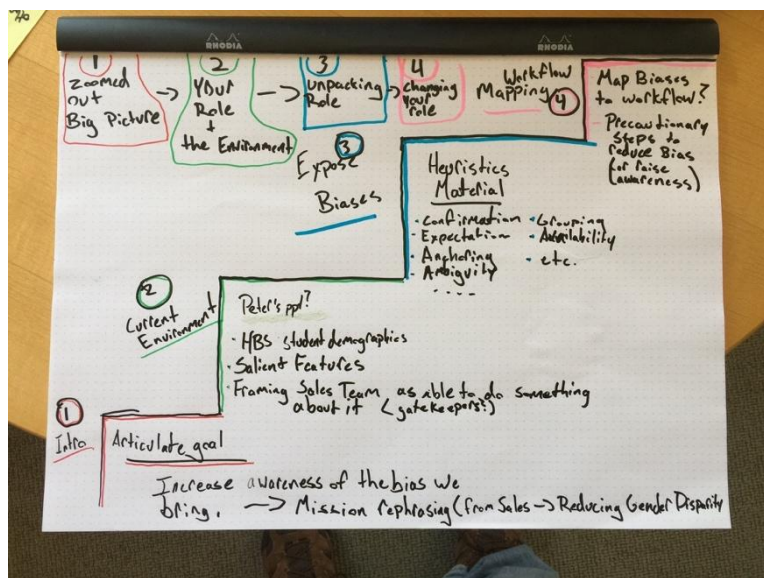 RHODIA
RHODIA
1
Zoomed
out
Big Picture
2
Your
Role
+
the Environment
3
Unpacking
Role
4
changing
your
role
Workflow
Mapping 4
Map Biases
to workflow?
- Precautionary
Steps to
reduce Bias
(or raise
awareness)
3
Expose
Biases
Heuristics
Material
· Confirmation
· Expectation
· Anchoring
· Ambiguity
....
· Grouping
· Availability
· etc.
2
Current
Environment
Peter's ppl?
· HBS student demographics
· Salient Features
· Framing Sales Team as able to do something
about it (gatekeepers?)
1
Intro
Articulate goal
Increase awareness of the bias we
bring. —> Mission rephrasing (from Sales —> Reducing Gender Disparity